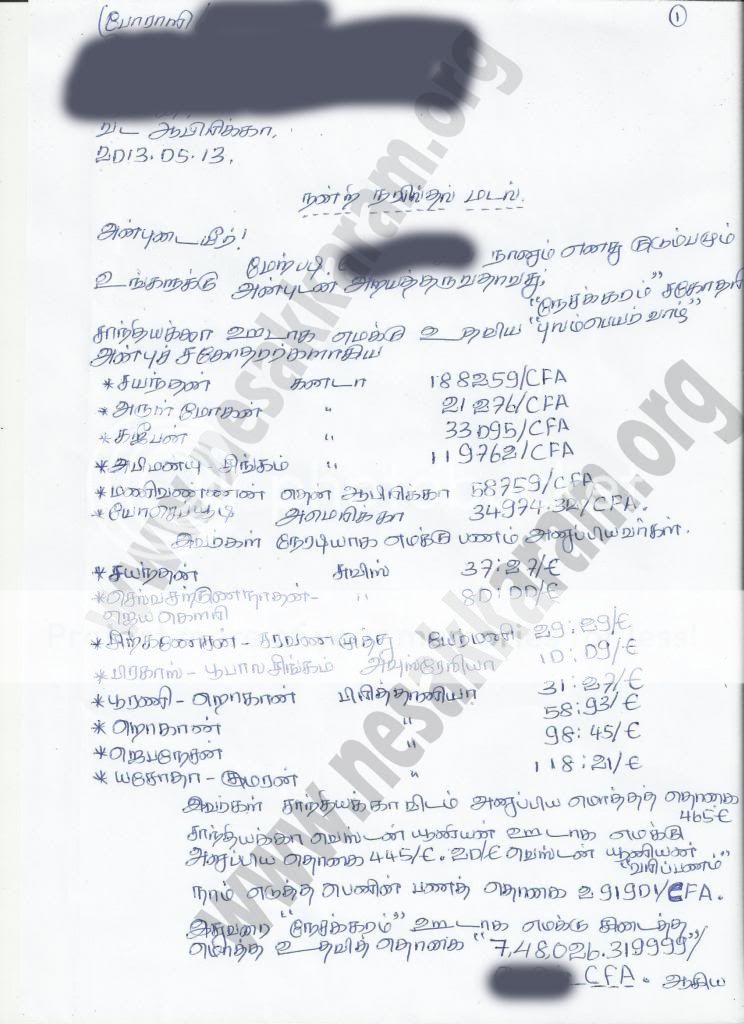 (போராளி
1
வட ஆபிரிக்கா.
2013.05.13.
நன்றி நவிலல் மடல்.
அன்புடையீர்!
மேற்படி நானும் எனது குடும்பமும்
உங்களுக்கு அன்புடன் அறியத்தருவதாவது.
"நேசக்கரம்" சகோதரி
சாந்தியக்கா ஊடாக எமக்கு உதவிய "புலம்பெயர் வாழ்"
அன்புச் சகோதரர்களாகிய
*சயந்தன் கனடா 188259/CFA
*அருள் மோகன் " 21276/CFA
*சஜீபன் " 33095/CFA
*அபிமன்யு - சிங்கம் " 119762/CFA
*மணிவண்ணன் தென் ஆபிரிக்கா 58759/CFA
* அமெரிக்கா 34974.32/CFA.
இவர்கள் நேரடியாக எமக்கு பணம் அனுப்பியவர்கள்.
*சயந்தன் சுவிஸ் 37:27/€
* " 80:00/€
ஜெயகௌரி
* யேர்மனி 29:29/€
*பிரகாஸ் - பூபாலசிங்கம் அவுஸ்ரேலியா 10:09/€
*பூரணி - றொகான் பிரித்தானியா 31:27/€
*றொகாண் " 58:93/€
*ஜெபநேசன் " 98:45/€
*யசோதா - குமரன் " 118:21/€
இவர்கள் சாந்தியக்காவிடம் அனுப்பிய மொத்தத் தொகை
465€
சாந்தியக்கா வெஸ்டன் யூனியன் ஊடாக எமக்கு
அனுப்பிய தொகை 445/€. 20/€ வெஸ்டன் யூனியன்
"வரிப்பணம்"
நாம் எடுத்த பெனின் பணத் தொகை 291901/CFA.
இதுவரை "நேசக்கரம்" ஊடாக எமக்கு கிடைத்த
மொத்த உதவித் தொகை "7,48,026.319999/
CFA. ஆகிய
www.nesakkaram.org
www.nesakkaram.org